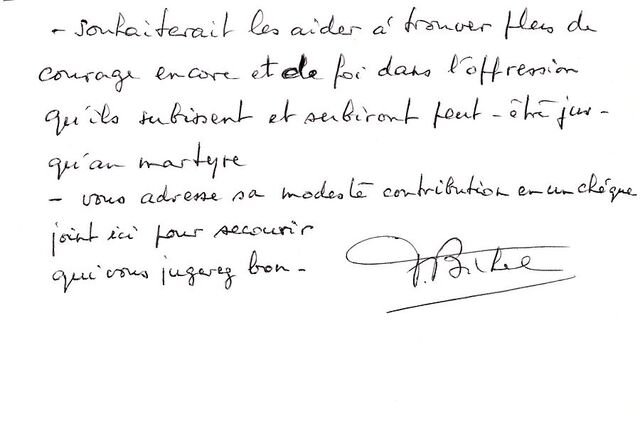 - souhaiterait les aider à trouver plus de
courage encore et de foi dans l'oppression
qu'ils subissent et subiront peut-être jus-
qu'au martyre
- vous adresse sa modeste contribution en un chèque
joint ici pour secourir
qui vous jugerez bon -